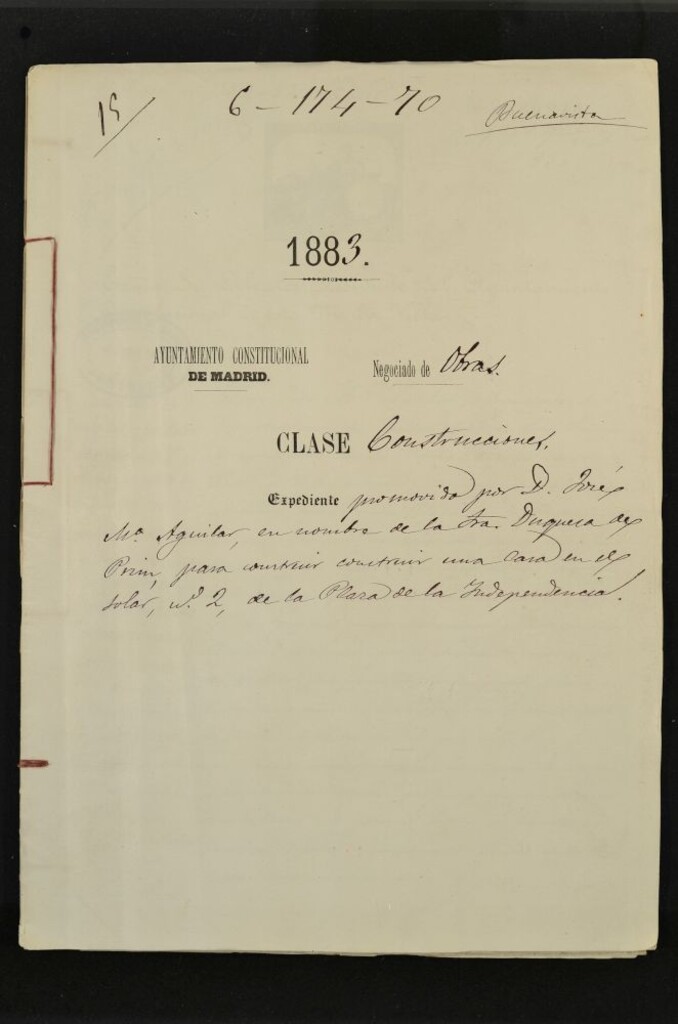 15/ 6-174-70 Buenavista
1883.
AYUNTAMIENTO CONSTITUCIONAL
DE MADRID.
Negociado de Obras.
CLASE Construcciones.
Expediente promovido por D. José
Mª Aguilar, en nombre de la Sra. Duquesa de
Prim, para construir construir una casa en el
solar, nº 2, de la Plaza de la Independencia.